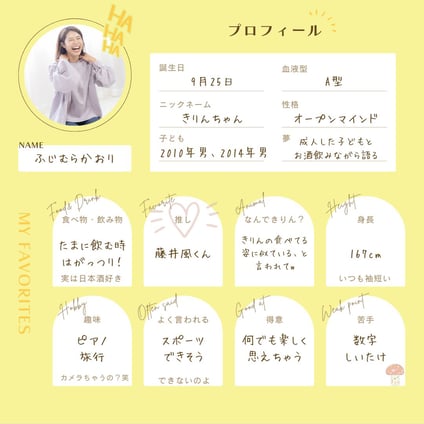 HA
HA
HA
プロフィール
誕生日
9月25日
血液型
A型
ニックネーム
きりんちゃん
性格
オープンマインド
子ども
2010年男、2014年男
夢
成人した子どもと
お酒飲みながら語る
NAME
ふじむらかおり
MY FAVORITES
Food & Drink
食べ物・飲み物
たまに飲む時
はがっつり!
実は日本酒好き
Favorite
推し
藤井風くん
Animal
なんできりん?
きりんの食べてる
姿に似ている、と
言われてw
Height
身長
167cm
いつも袖短い
Hobby
趣味
ピアノ
旅行
カメラちゃうの?笑
Often said
よく言われる
スポーツ
できそう
できないのよ
Good at
得意
何でも楽しく
思えちゃう
Weak point
苦手
数字
しいたけ